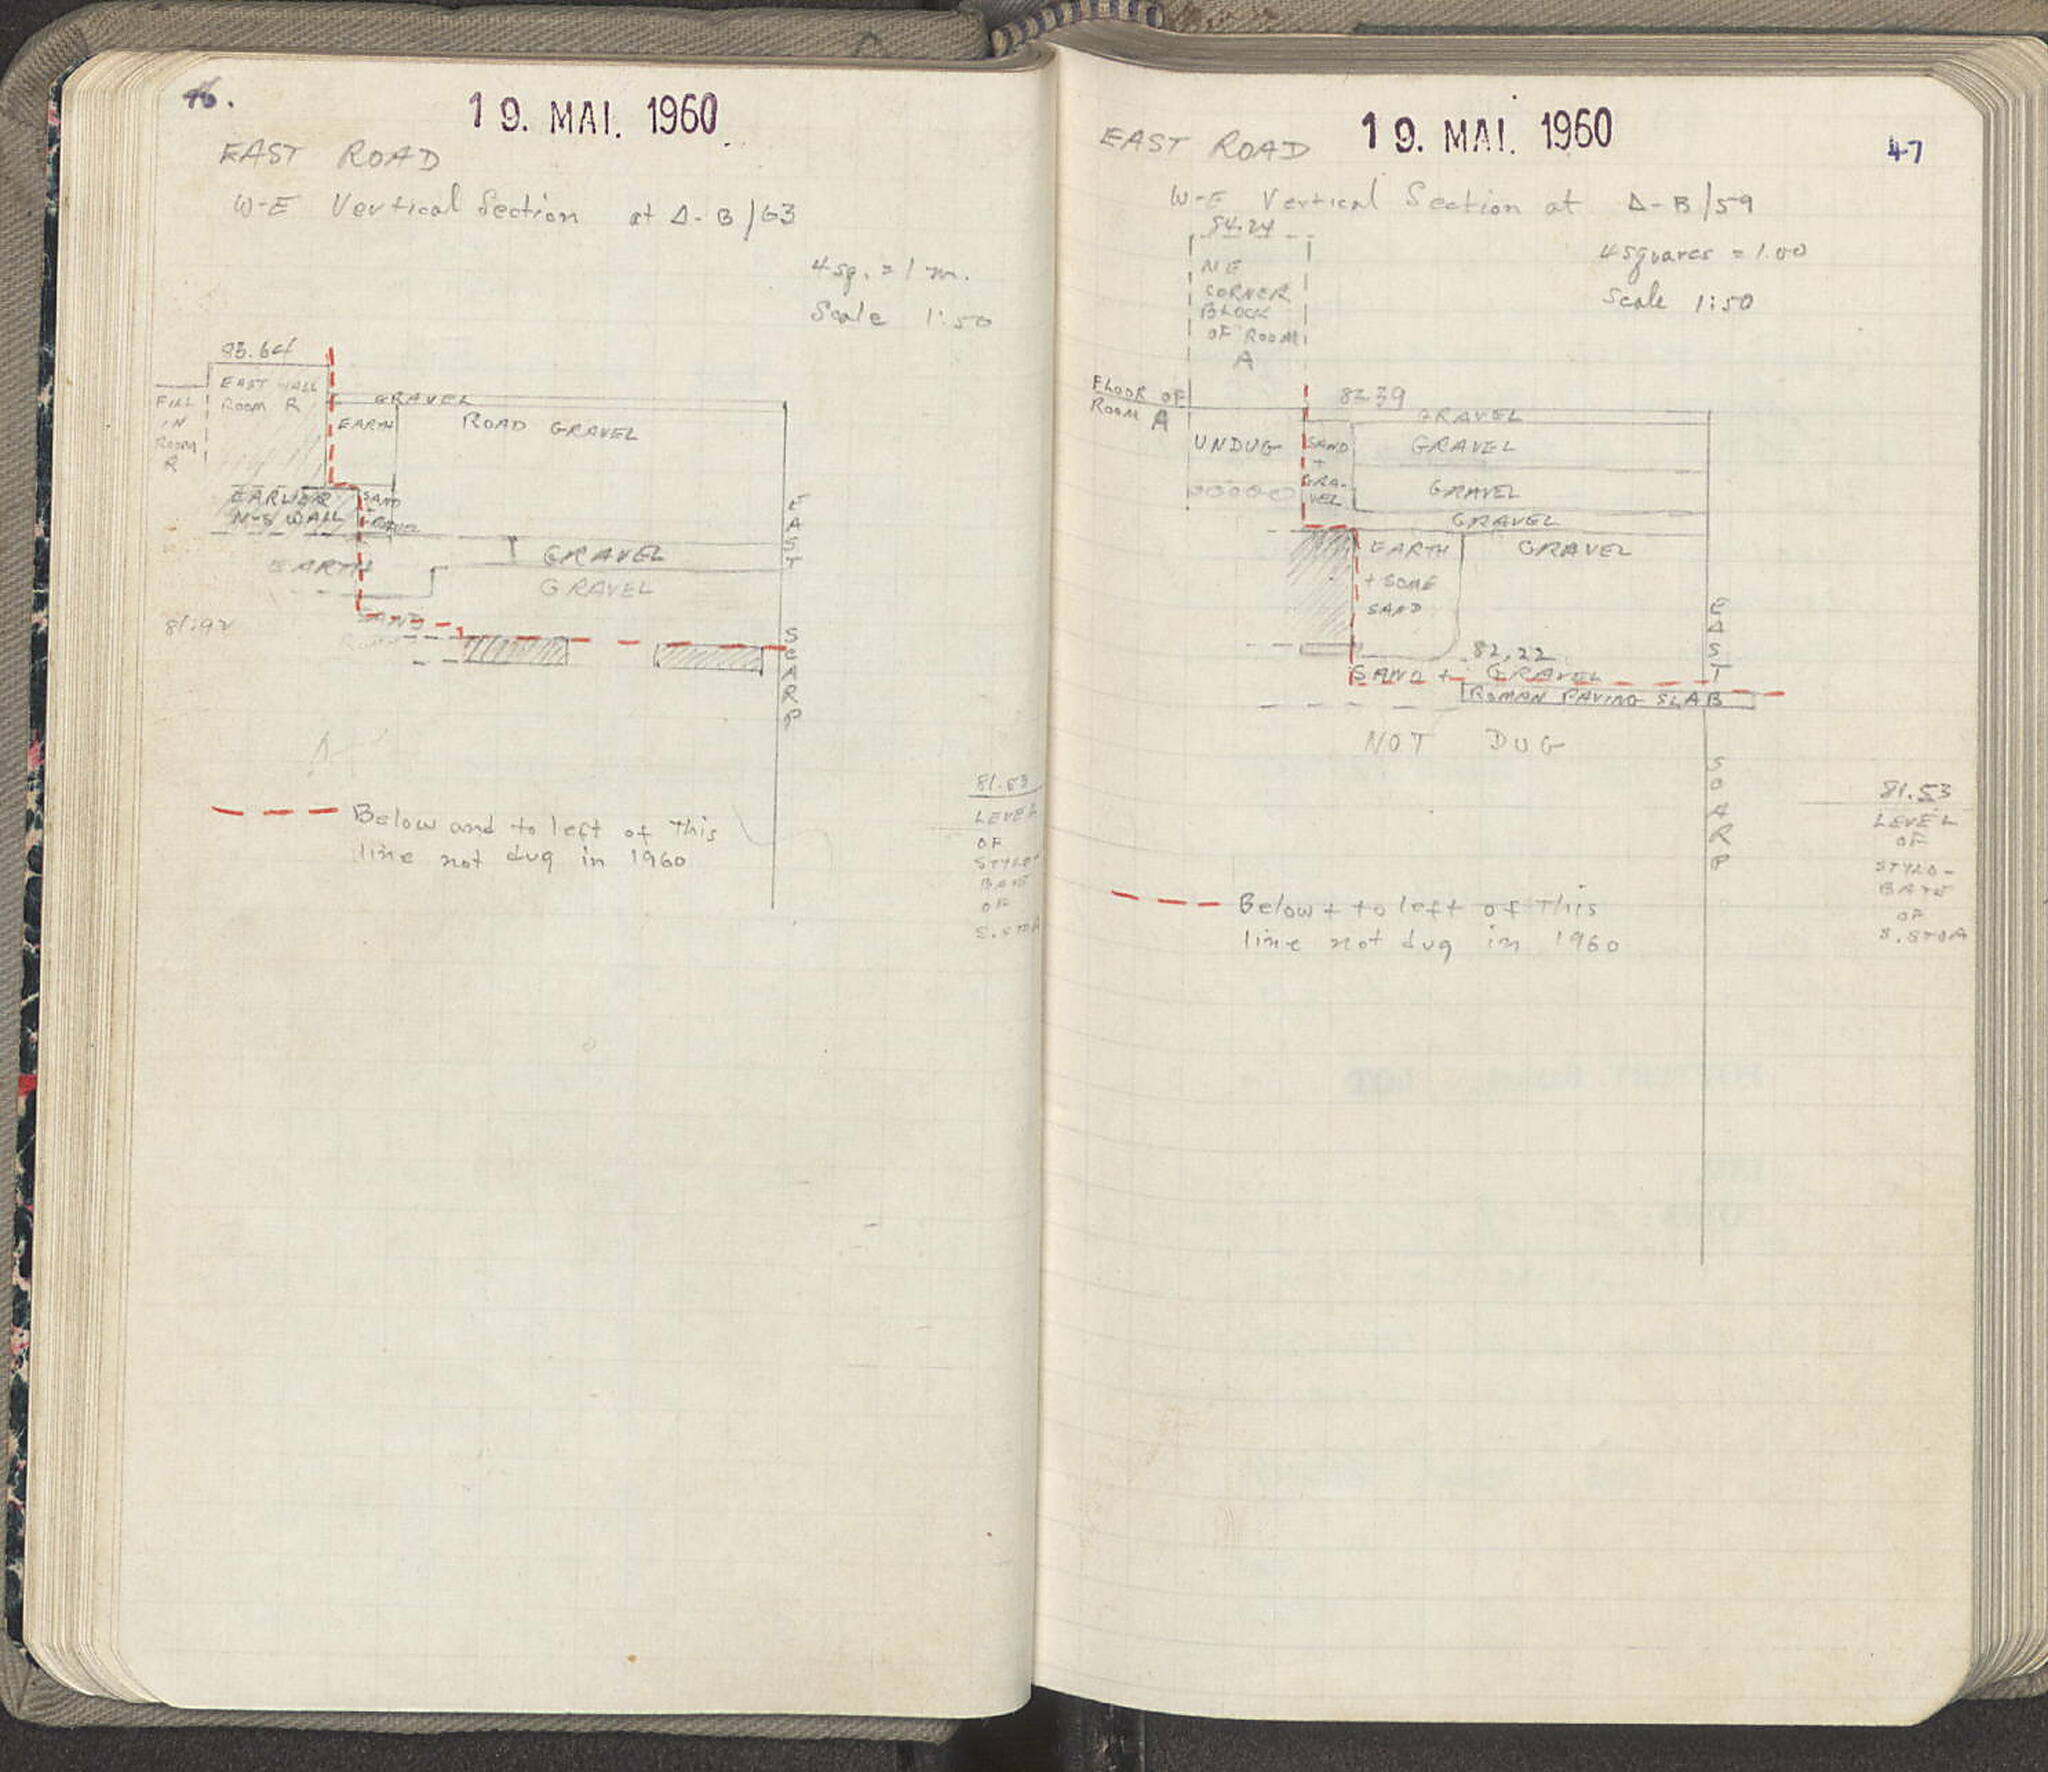 46.
19. MAI. 1960
EAST ROAD
W-E Vertical Section at Δ-B/63
4 sq. = 1 m.
Scale 1:50
83.64
EAST WALL
ROOM R
FILL
IN
ROOM
R
GRAVEL
EARTH
ROAD GRAVEL
EARLIER
N-S WALL
SAND
+
GRAVEL
EARTH
GRAVEL
GRAVEL
SAND
81.92
EAST
SCARP
Below and to left of This
line not dug in 1960
81.53
LEVEL
OF
STYLO-
BATE
OF
S. STOA
EAST ROAD
19. MAI. 1960
47
W-E Vertical Section at Δ-B/59
84.24
4 squares = 1.00
Scale 1:50
NE
CORNER
BLOCK
OF ROOM
A
FLOOR OF
ROOM A
GRAVEL
UNDUG
SAND
+
GRA-
VEL
GRAVEL
GRAVEL
GRAVEL
EARTH
+ SOME
SAND
GRAVEL
82.22
SAND + GRAVEL
ROMAN PAVING SLAB
NOT DUG
EAST
SCARP
81.53
LEVEL
OF
STYLO-
BATE
OF
S. STOA
Below + to left of This
line not dug in 1960